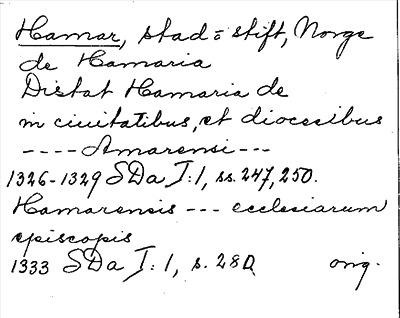 Hamar, stad o stift, Norge
de Hamaria
Distat Hamaria de
in ciuitatibus, et diocesibus
---- Amarensi ---
1326-1329 SDa I:1, ss. 247, 250.
Hamarensis --- ecclesiarum
episcopis
1333 SDa I:1, s. 280. orig.